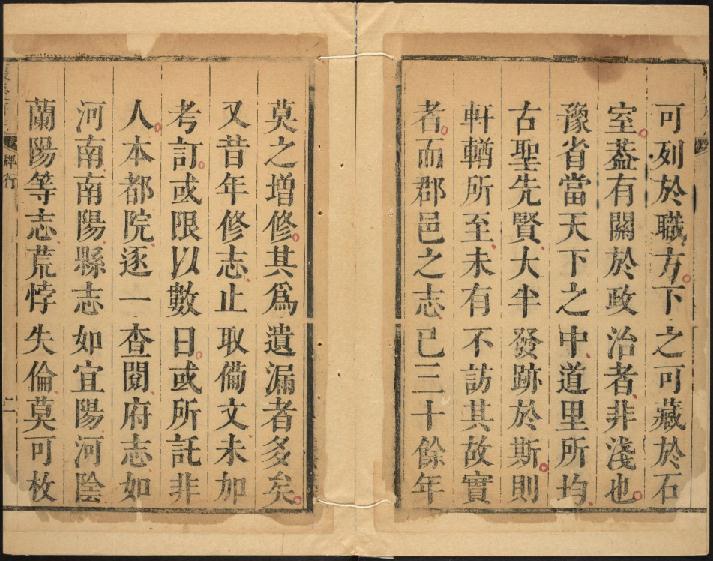 可列於職方下之可藏於石
室葢有關於政治者非淺也
豫省當天下之中道里所均
古聖先賢大半發跡於斯則
軒輶所至未有不訪其故實
者而郡邑之志已三十餘年
莫之增修其爲遺漏者多矣
又昔年修志止取備文未加
考訂或限以數日或所託非
人本都院逐一查閱府志如
河南南陽縣志如宜陽河陰
蘭陽等志荒悖失倫莫可枚